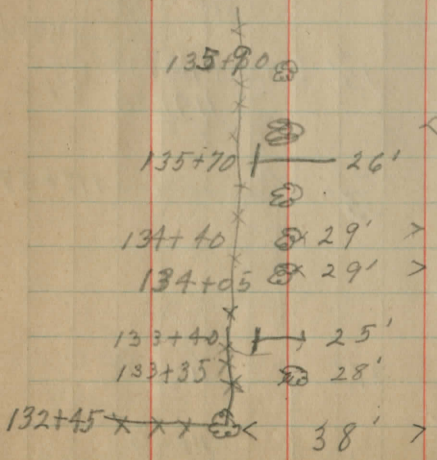 135+90
135+70 26'
134+40 29' >
134+05 29' >
133+40 25'
133+35 28'
132+45 < 38' >